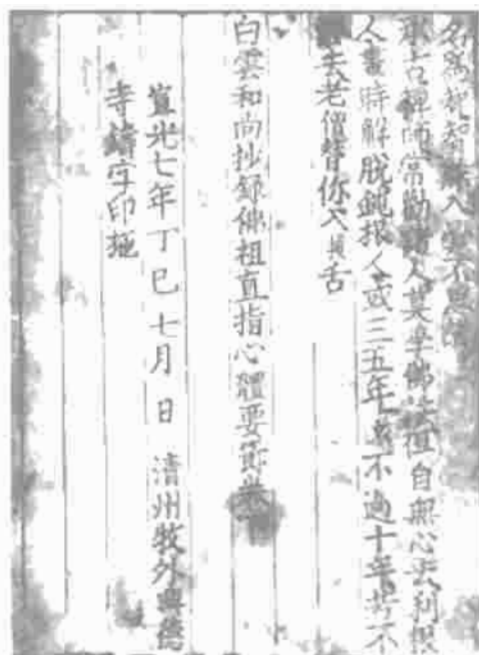 名爲入不思
古禪師常勸諸人莫學佛法但自無心去利根
人晝時解脫鈍根人或三五年遠不過十年若不
去老僧替你入舌
白雲和尚抄錄佛祖直指心體要節卷
宣光七年丁巳七月 日 清州牧外興德
寺鑄字印施